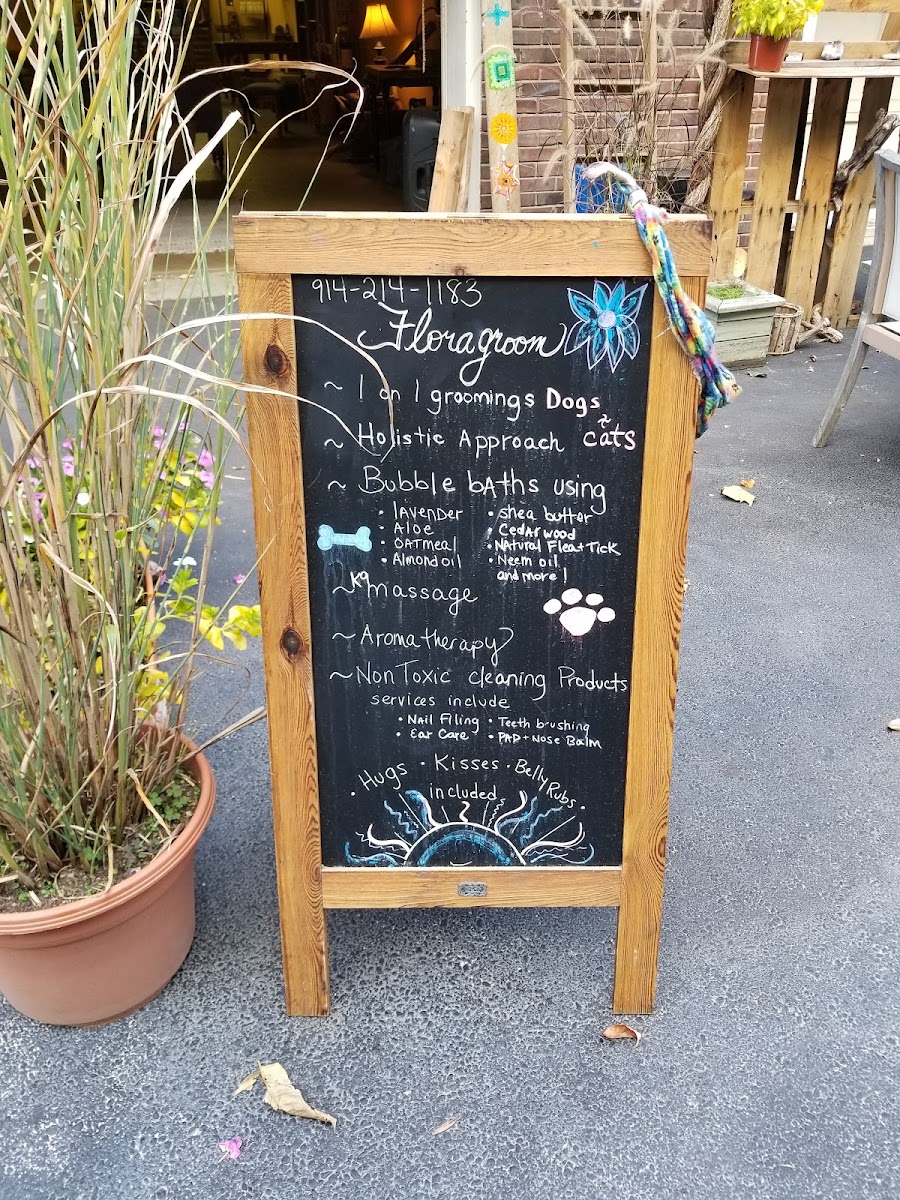 914-214-1183
Floragroom
~ 1 on 1 groomings Dogs
~ Holistic Approach ~ cats
~ Bubble bAths using
• lAvender • shea butter
• Aloe • CedAr wood
• OATmeal • NAtural Flea + Tick
• Almond oil • Neem oil
and more!
~ K9 massage
~ Aromatherapy
~ Non Toxic cleaning Products
services include
• NAil Filing • Teeth brushing
• Ear Care • PAD + Nose Balm
• Hugs • Kisses • Belly Rubs •
included